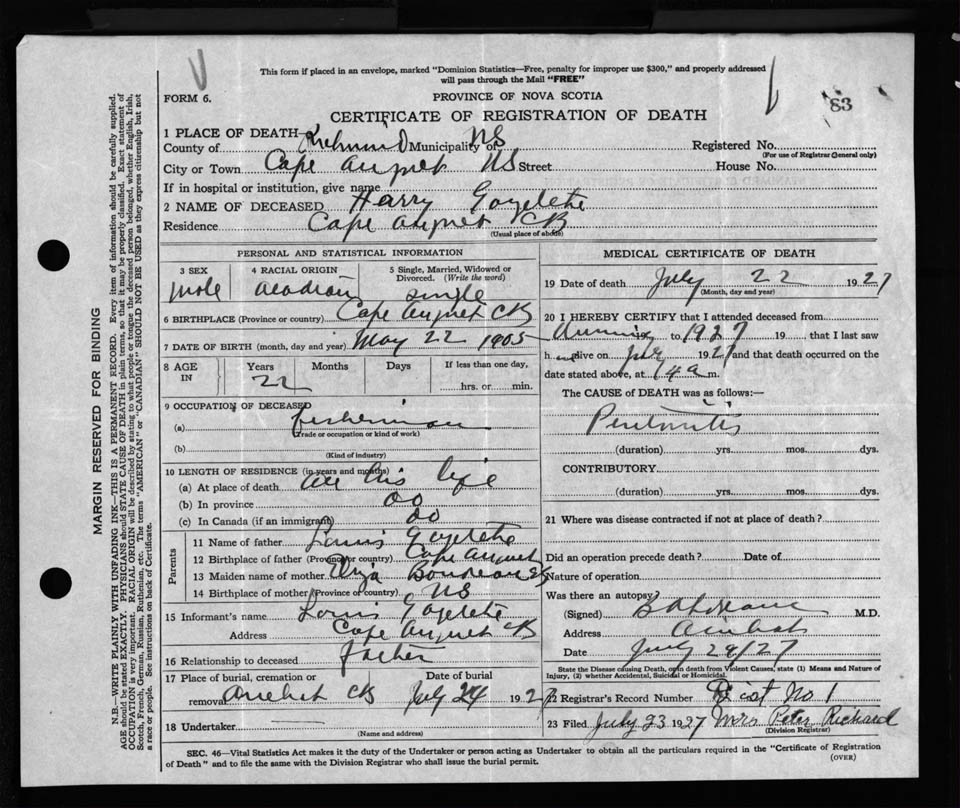 This form if placed in an envelope, marked "Dominion Statistics—Free, penalty for improper use $300," and properly addressed
will pass through the Mail "FREE"
FORM 6.
PROVINCE OF NOVA SCOTIA
83
CERTIFICATE OF REGISTRATION OF DEATH
1 PLACE OF DEATH
County of Richmond Municipality of NS Registered No.
(For use of Registrar General only)
City or Town Cape Auguet NS Street House No.
If in hospital or institution, give name
2 NAME OF DECEASED Harry Goyetche
Residence Cape Auguet CB
(Usual place of abode)
PERSONAL AND STATISTICAL INFORMATION
3 SEX 4 RACIAL ORIGIN 5 Single, Married, Widowed or Divorced. (Write the word)
male acadian single
6 BIRTHPLACE (Province or country) Cape Auguet CB
7 DATE OF BIRTH (month, day and year) May 22 1905
8 AGE IN Years Months Days If less than one day,
22 hrs. or min.
9 OCCUPATION OF DECEASED
(a) fisherman
(Trade or occupation or kind of work)
(b)
(Kind of industry)
10 LENGTH OF RESIDENCE (in years and months)
(a) At place of death all his life
(b) In province do
(c) In Canada (if an immigrant) do
Parents
11 Name of father Louis Goyetche
12 Birthplace of father (Province or country) Cape Auguet
13 Maiden name of mother
14 Birthplace of mother (Province or country) NS
15 Informant's name Louis Goyetche
Address Cape Auguet CB
16 Relationship to deceased father
17 Place of burial, cremation or removal Date of burial
Arichat CB July 24 1927
18 Undertaker
(Name and address)
MEDICAL CERTIFICATE OF DEATH
19 Date of death July 22 1927
(Month, day and year)
20 I HEREBY CERTIFY that I attended deceased from
to 1927 19 that I last saw
h alive on July 1927 and that death occurred on the
date stated above, at a m.
The CAUSE of DEATH was as follows:—
Peritonitis
(duration) yrs. mos. dys.
CONTRIBUTORY
(duration) yrs. mos. dys.
21 Where was disease contracted if not at place of death?
Did an operation precede death? Date of
Nature of operation
Was there an autopsy?
(Signed) M.D.
Address Arichat
Date July 29/27
State the Disease causing Death, or in death from Violent Causes, state (1) Means and Nature of
Injury, (2) whether Accidental, Suicidal or Homicidal.
22 Registrar's Record Number Dist No 1
23 Filed July 23 1927 Mrs Peter Richard
(Division Registrar)
SEC. 46—Vital Statistics Act makes it the duty of the Undertaker or person acting as Undertaker to obtain all the particulars required in the "Certificate of Registration
of Death" and to file the same with the Division Registrar who shall issue the burial permit.
(OVER)
MARGIN RESERVED FOR BINDING
N.B.—WRITE PLAINLY WITH UNFADING INK—THIS IS A PERMANENT RECORD. Every item of information should be carefully supplied.
AGE should be stated EXACTLY. PHYSICIANS should STATE CAUSE OF DEATH in plain terms, so that it may be properly classified. Exact statement of
OCCUPATION is very important. RACIAL ORIGIN will be described by stating to what people or tongue the deceased person belonged, whether English, Irish,
Scotch, French, German, Russian, Ruthenian, etc. The terms "AMERICAN" or "CANADIAN" SHOULD NOT BE USED as they express citizenship but not
a race or people. See instructions on back of Certificate.